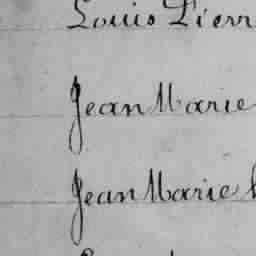 Louis Pierr
Jean Marie
Jean Marie